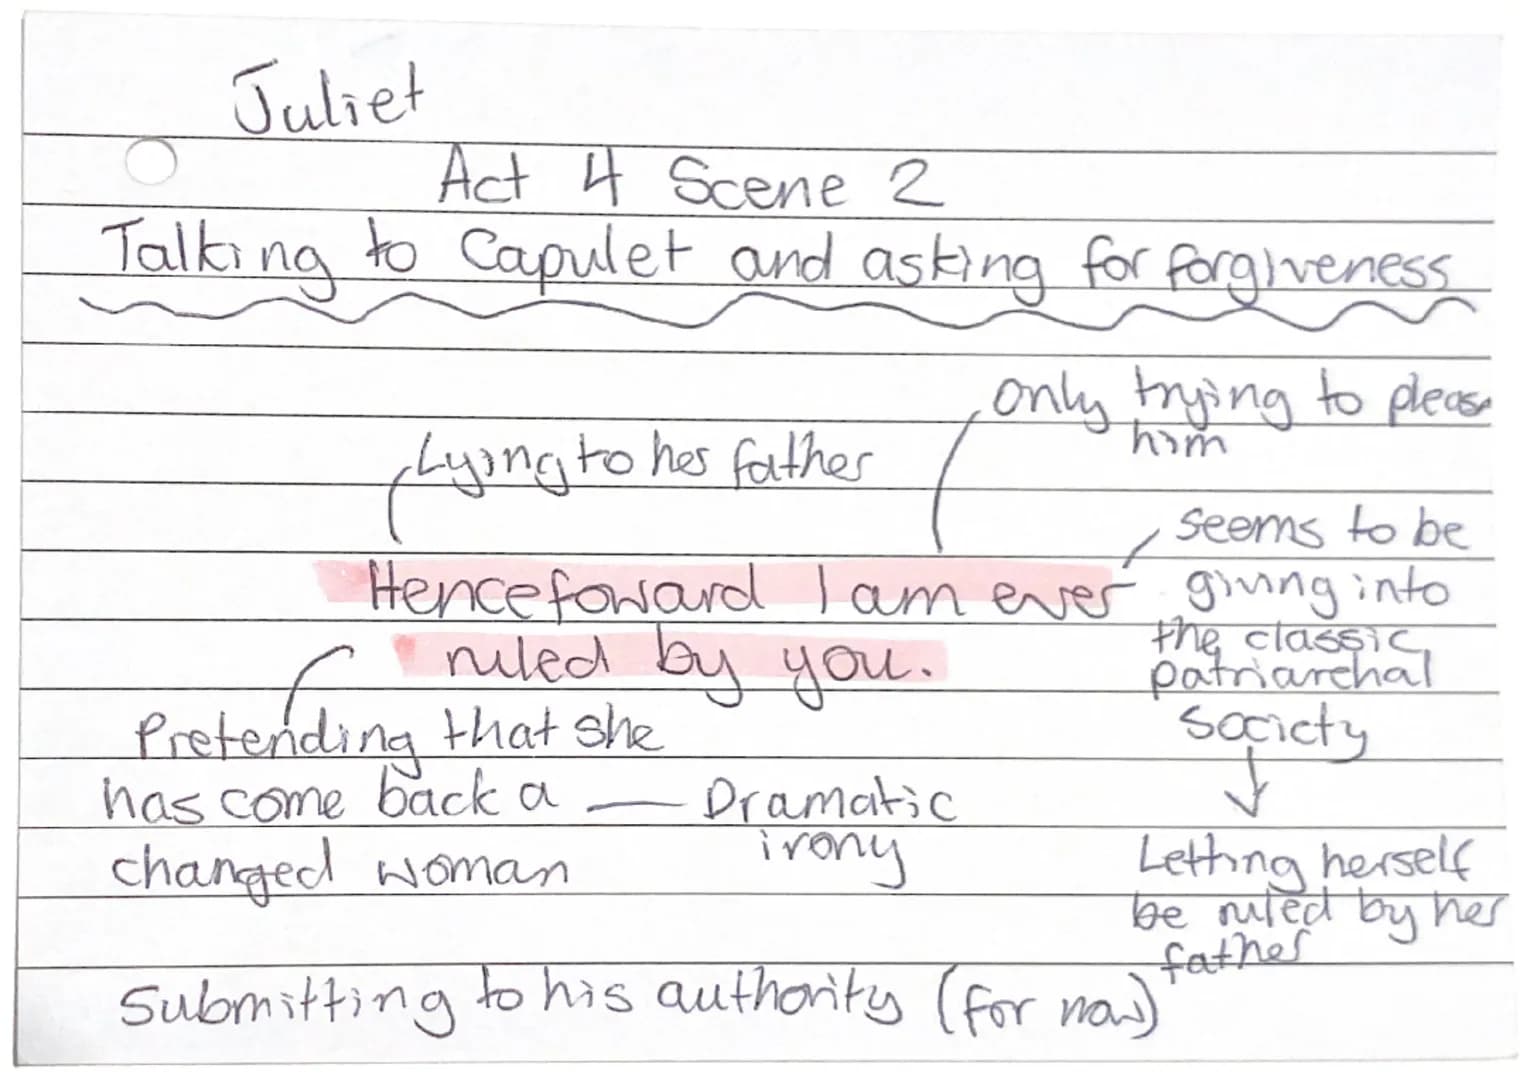 Juliet
Act 4 Scene 2
Talking to Capulet and asking for forgiveness
only trying to please
him
Lying to her father
seems to be
giving into
the classic
patriarchal
society
Henceforward I am ever
ruled by you.
Pretending that she
has come back a
changed woman
Dramatic
irony
Letting herself
be ruled by her
father
Submitting to his authority (for now)